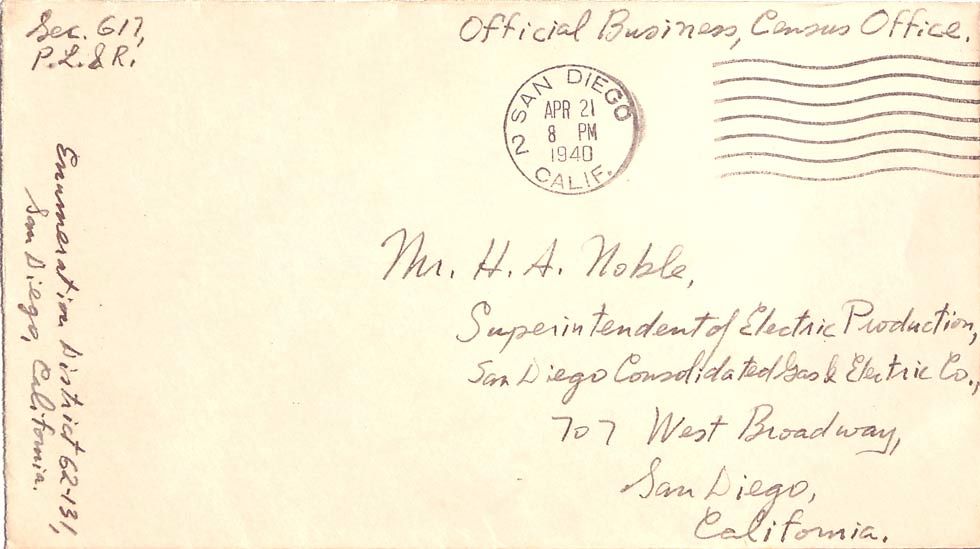 Sec. 617,
P.L.&R.
Official Business, Census Office.
2 SAN DIEGO
APR 21
8 PM
1940
CALIF.
Enumeration District 62-131,
San Diego, California.
Mr. H. A. Noble,
Superintendent of Electric Production,
San Diego Consolidated Gas & Electric Co.,
707 West Broadway,
San Diego,
California.